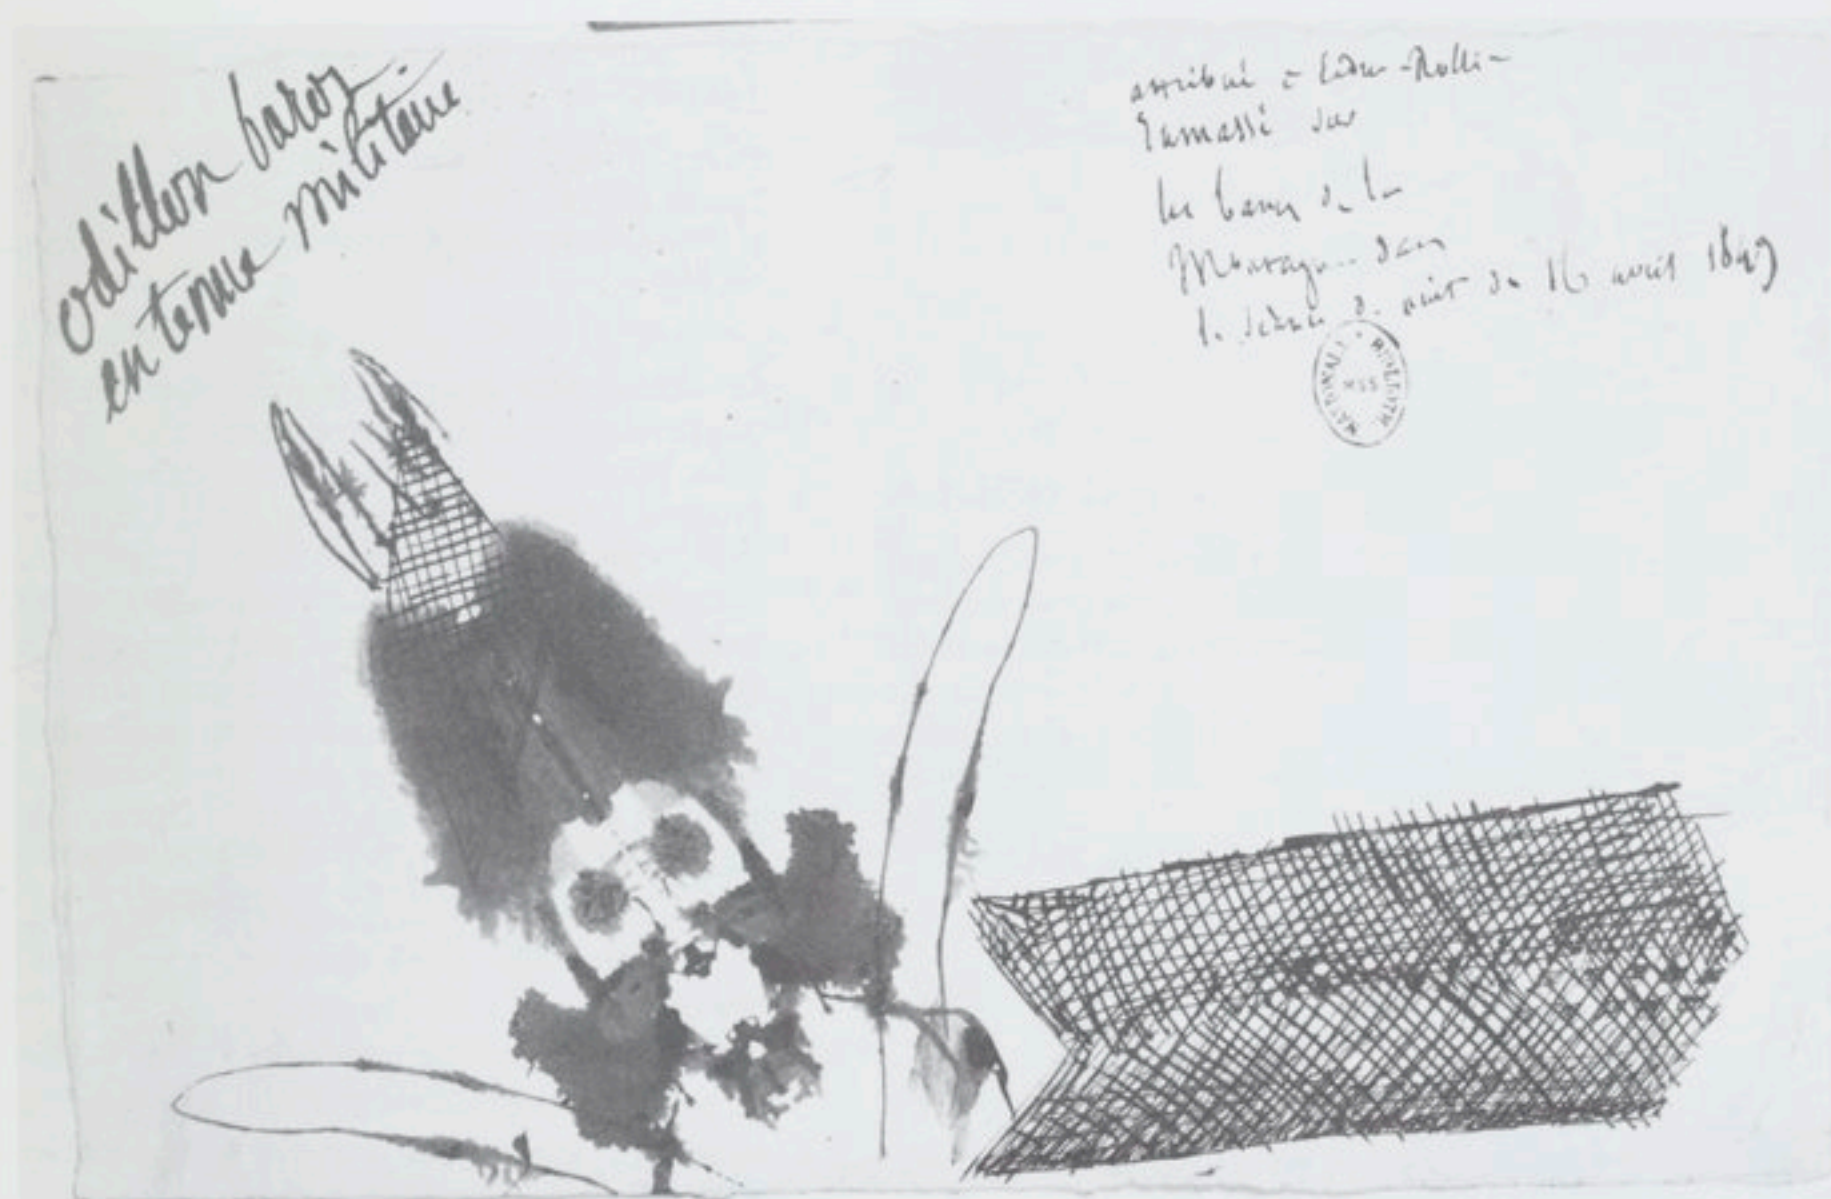 odillon barot
en tenue militaire
attribué à Ledru-Rollin
ramassé sur
les bancs de la
Montagne dans
la séance de nuit du 16 avril 1849
BIBLIOTH
NATIONALE
MSS